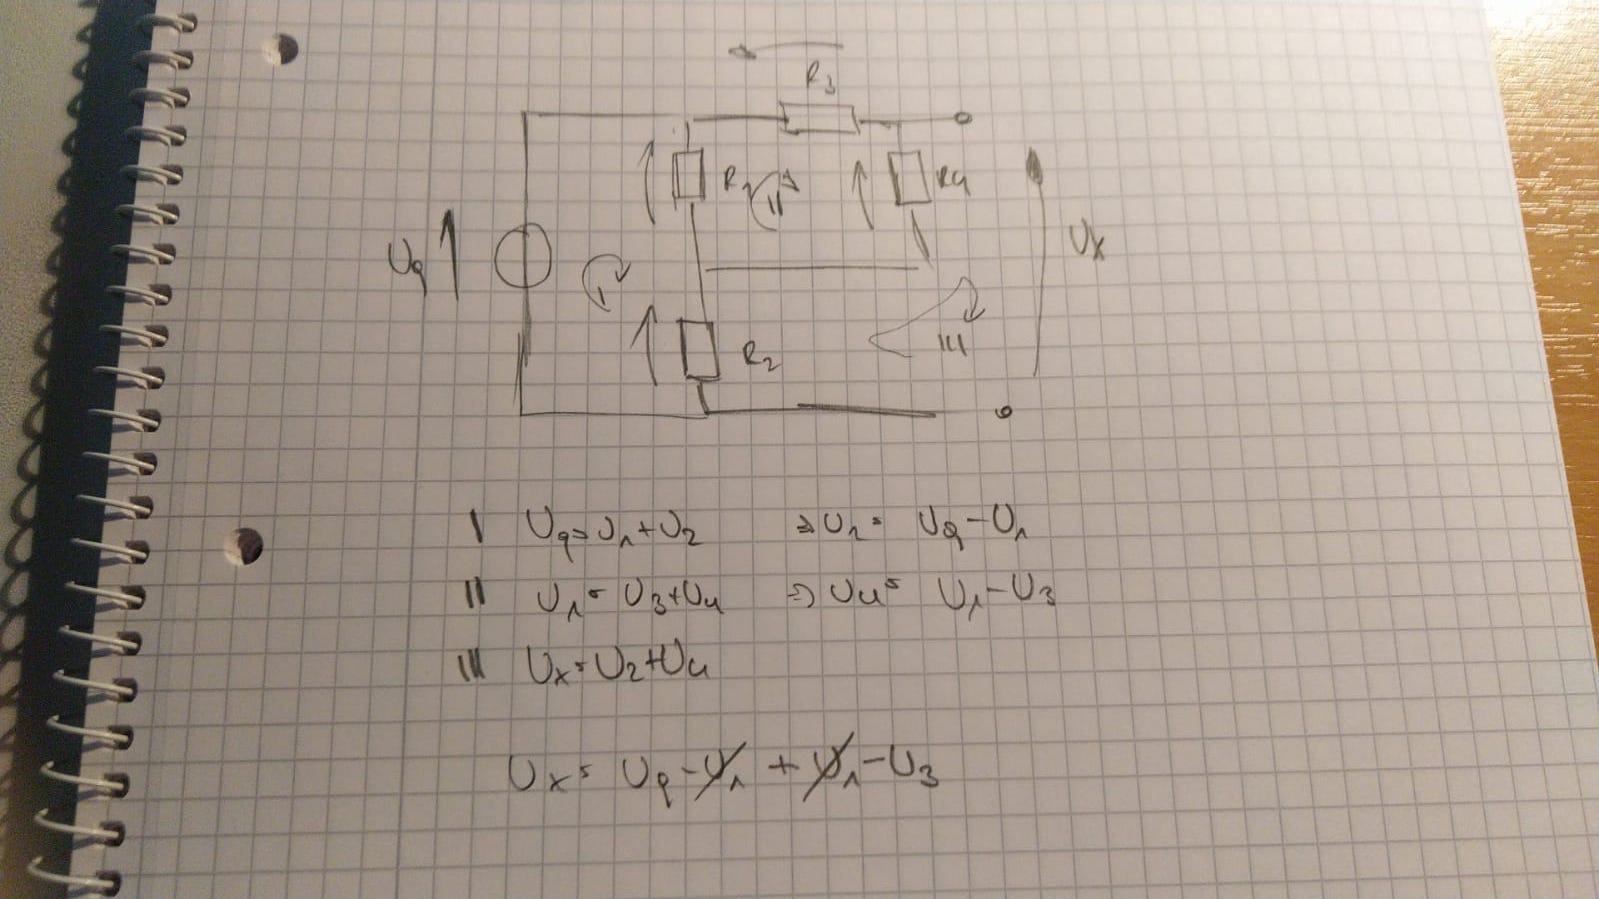 R3
R1 II R4
Uq I Ux
R2 III
I Uq = U1 + U2 ⇒ U2 = Uq - U1
II U1 = U3 + U4 ⇒ U4 = U1 - U3
III Ux = U2 + U4
Ux = Uq - U1 + U1 - U3